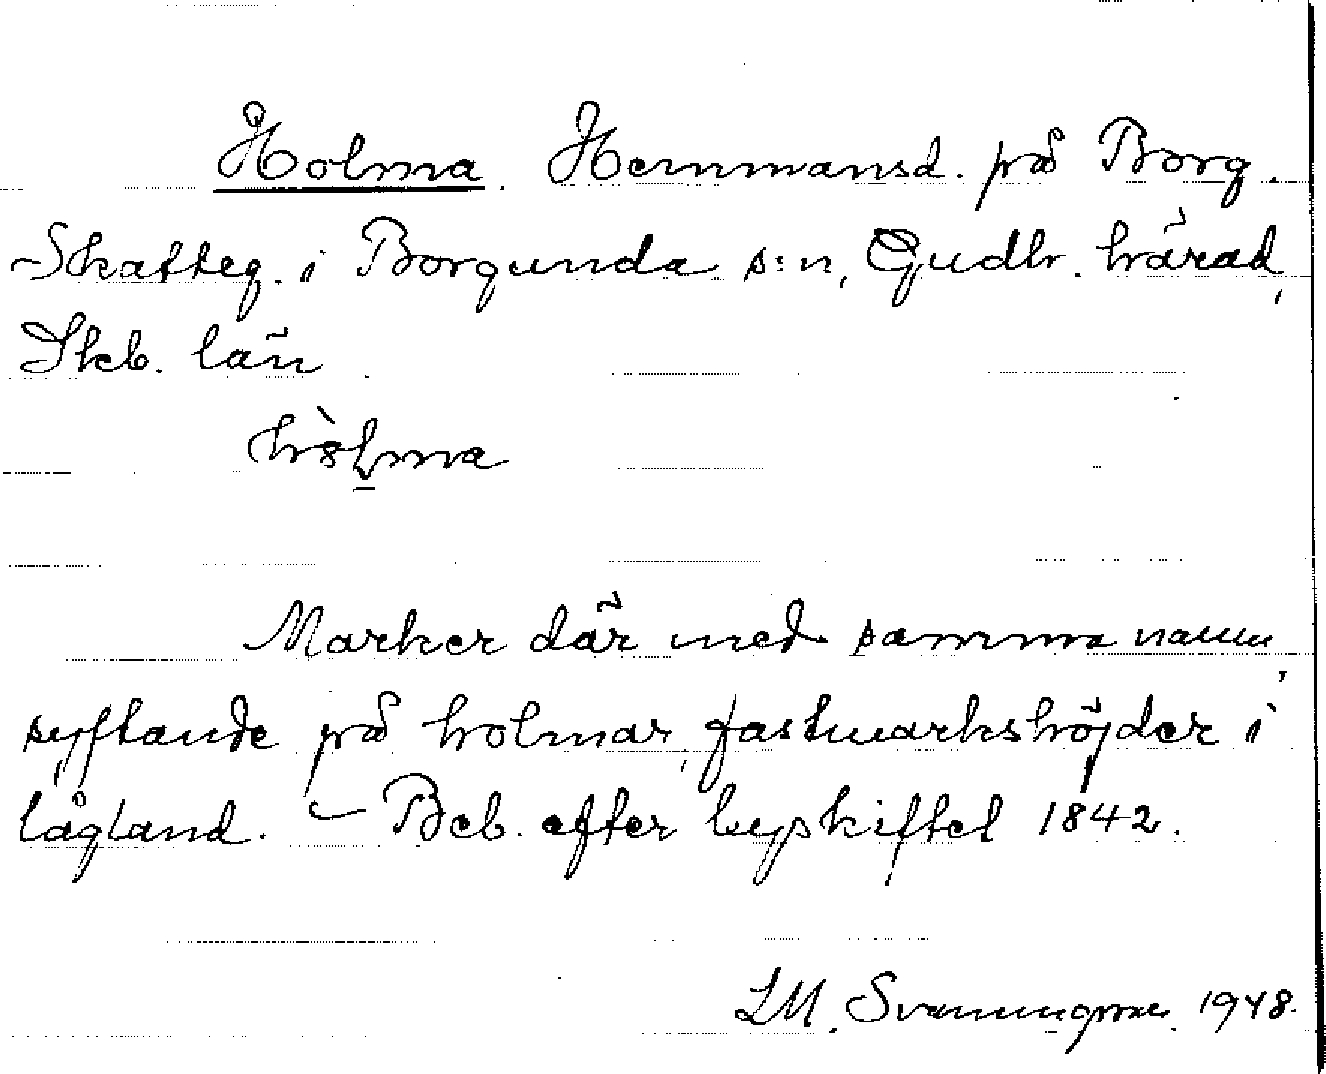 Holma. Hemmansd. på Borg.
Skatteg. i Borgunda s:n, Gudh. härad,
Skb. län
hòlma
Marker där med samma namn,
syftande på holmar, fastmarkshöjder i
lågland. – Beb. efter byskiftet 1842.
LM. Svanungsson 1948.